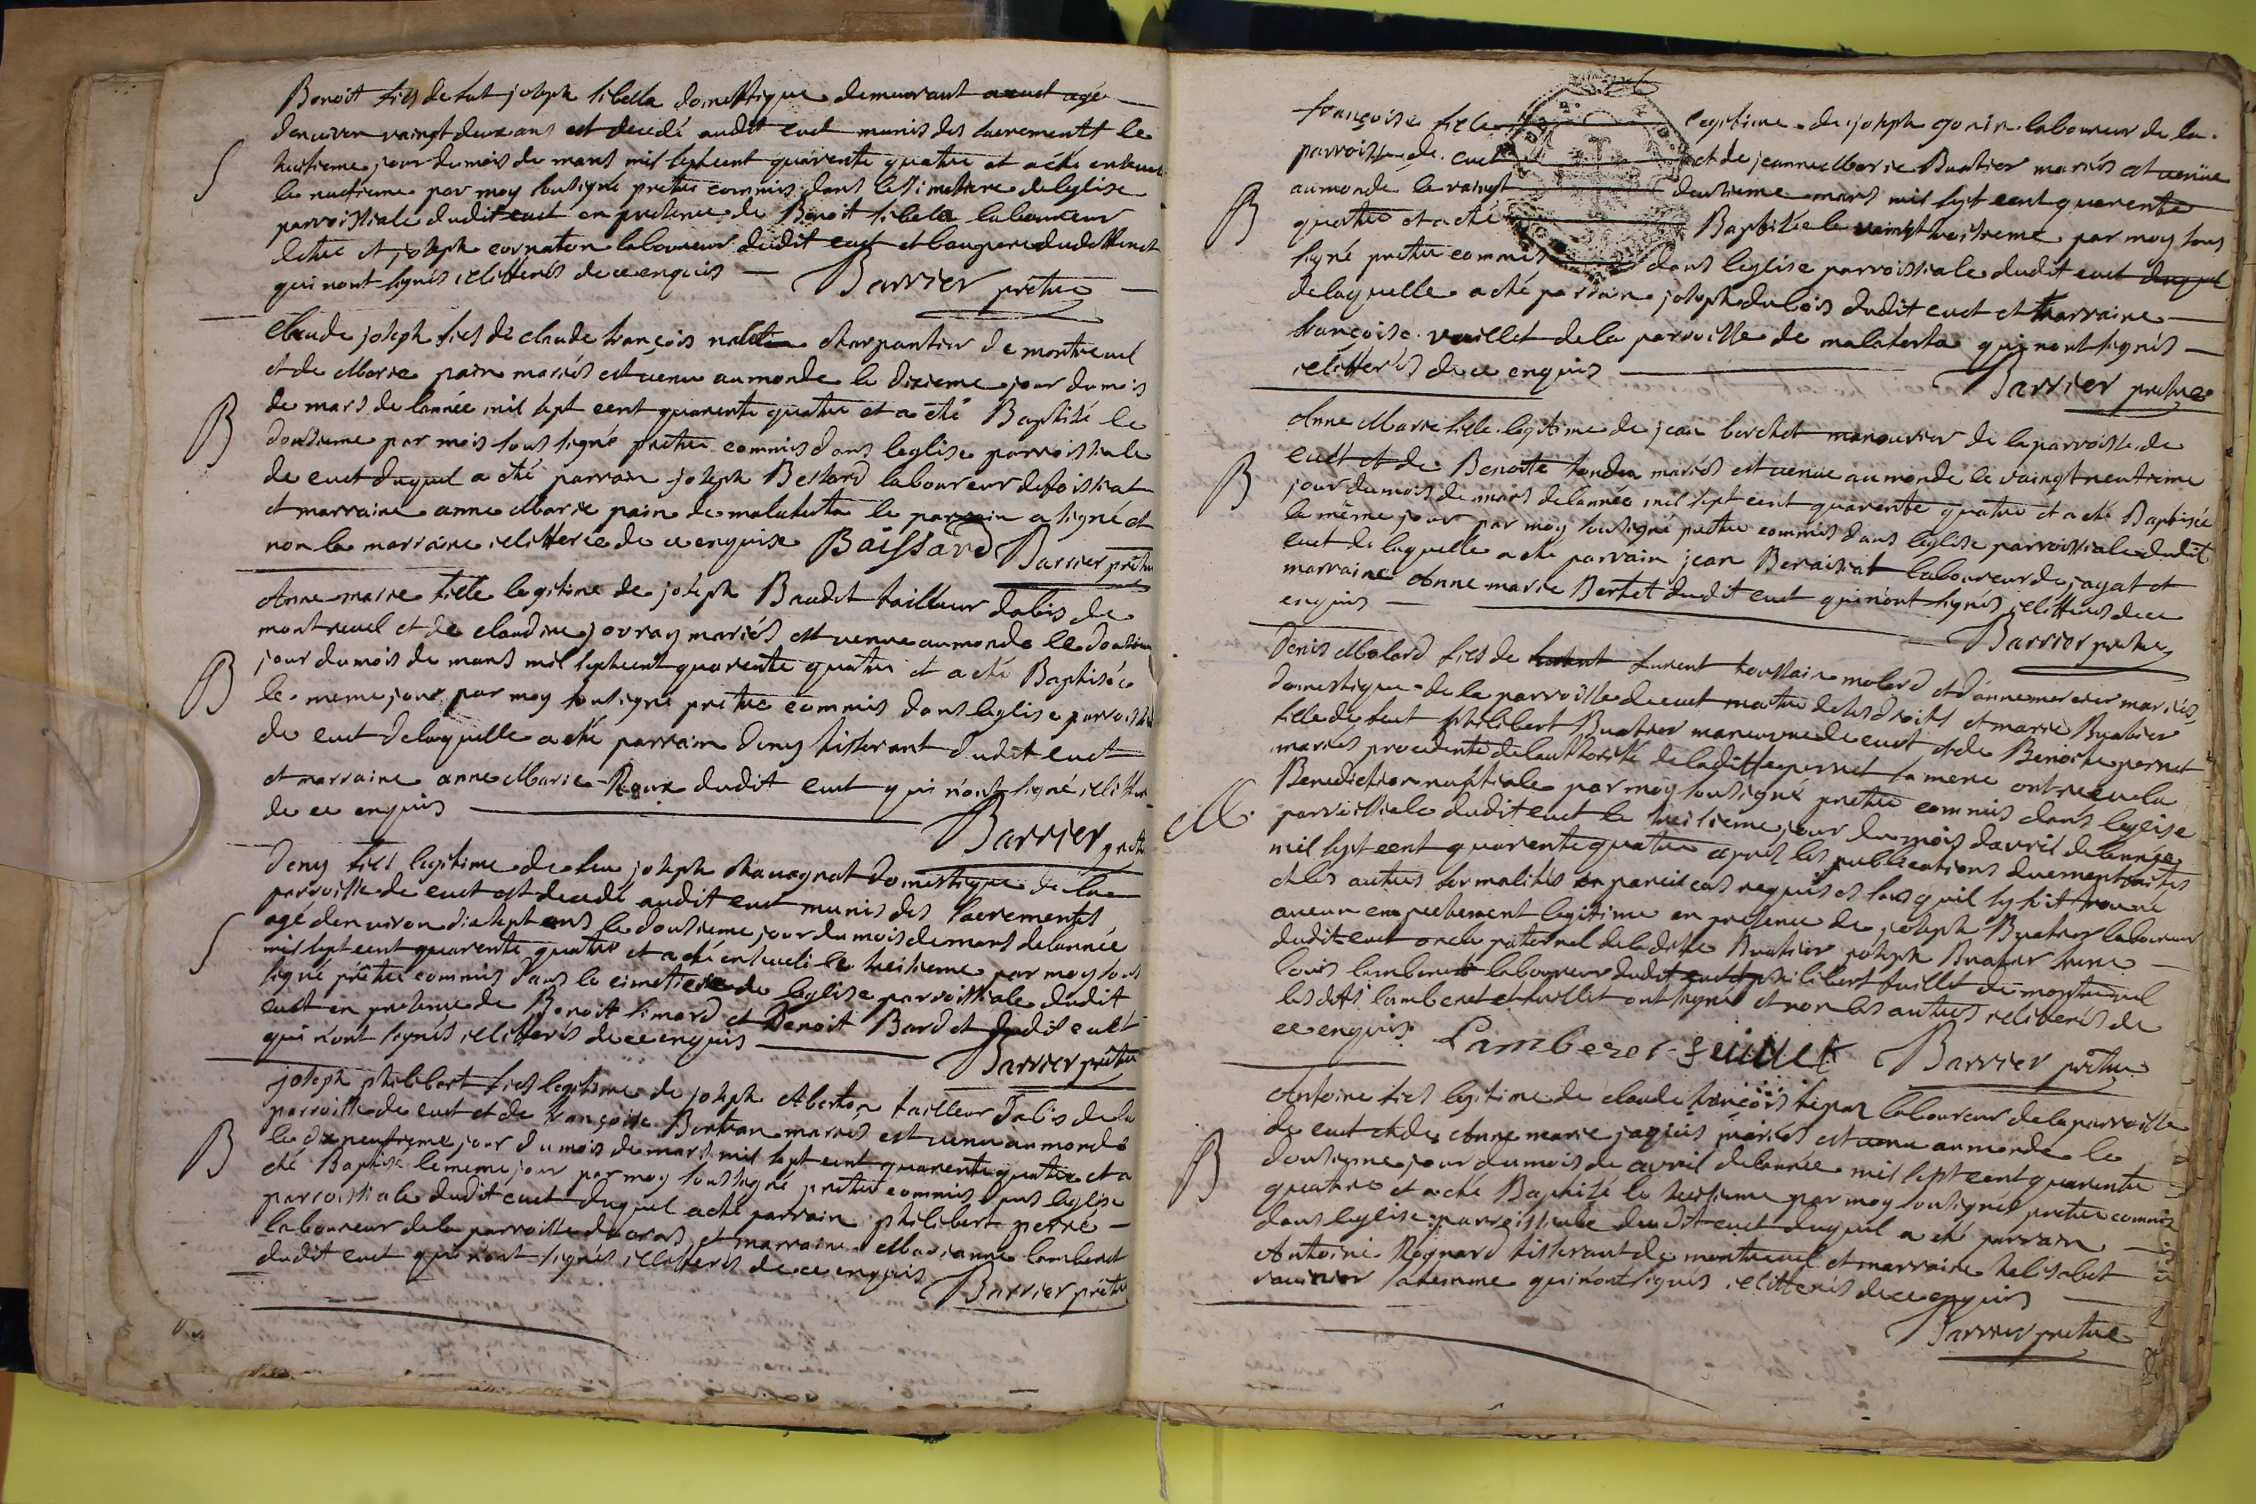 Benoit fils de fut joseph sibella domestique demeurant a cuet agé
denviron vaingt deux ans est decedé audit cuet munis des sacrements le
huitieme jour du mois de mars mil sept cent quarente quatre et a eté enterré
le neuvieme par moy sousigné pretre commis dans le simetiere de leglise
parroissiale dudit cuet en presence de Benoit sibella laboureur
et joseph cornaton laboureur dudit cuet et beaupere du deffunct
qui nont signés illitterés de ce enquis
Barrier pretre
S
Claude joseph fils de claude françois charpantier de montreuel
et de Marie pain mariés est venu au monde le dixieme jour du mois
de mars de lannée mil sept cent quarente quatre et a eté Baptisé le
douzieme par mois sousigné pretre commis dans leglise parroissiale
de cuet duquel a eté parrain joseph Bessard laboureur de foissiat
et marraine anne Marie pain de malafreta le parrain a signé et
non la marraine illitterée de ce enquise Baissard Barrier pretre
B
Anne marie fille legitime de joseph Baudet tailleur dabis de
montreuel et de claudine jovray mariés est venue au monde le douzieme
jour du mois de mars mil sept cent quarente quatre et a eté Baptisée
le meme jour par moy sousigné pretre commis dans leglise parroissiale
de cuet de laquelle a eté parrain Denys tisserant dudit cuet
et marraine anne Marie Roux dudit cuet qui n'ont signé illitterés
de ce enquis
Barrier pretre
B
Denys fils legitime de feu joseph chavagnat domestique de la
parroisse de cuet est decedé audit cuet munis des sacrements
agé denviron dixsept ans le douzieme jour du mois de mars de lannée
mil sept cent quarente quatre et a eté enseveli le treisieme par moy sous
signé prêtre commis dans le cimetiere de leglise parroissiale dudit
cuet en presence de Benoit simard et Benoit Bardet dudit cuet
qui n'ont signés illitterés de ce enquis
Barrier prêtre
S
joseph philibert fils legitime de joseph Aberton tailleur dabis de la
parroisse de cuet et de françoise Bertran mariés est venu au monde
le dix neuvieme jour du mois de mars mil sept cent quarente quatre et a
eté Baptisé le meme jour par moy sousigné pretre commis dans leglise
parroissiale dudit cuet duquel a eté parrain philibert perré
laboureur de la parroisse et marraine Marianne lamberet
dudit cuet qui n'ont signés illitterés de ce enquis
Barrier prêtre
B
françoise fille legitime de joseph gonin laboureur de la
parroisse de cuet et de jeanne Marie Buatier mariés est venüe
au monde le vaingt deuxieme mars mil sept cent quarente
quatre et a eté Baptisée le vaingt troisieme par moy sous
signé pretre commis dans leglise parroissiale dudit cuet duquel
de laquelle a eté parrain joseph dubois dudit cuet et marraine
françoise vuillet de la parroisse de malafreta qui n'ont signés
illitterés de ce enquis
Barrier pretre
B
Anne Marie fille legitime de jean berchet manouvrier de la parroisse de
cuet et de Benoite tendra mariés est venue au monde le vaingt neuvieme
jour du mois de mars de lannée mil sept cent quarente quatre et a eté Baptisée
le même jour par moy sousigné pretre commis dans leglise parroissiale dudit
cuet de laquelle a eté parrain jean Beraisiat laboureur de jayat et
marraine Anne marie Bertet dudit cuet qui n'ont signés illitterés de ce
enquis
Barrier pretre
B
Denis Molard fils de laurent toussain molard et d'anne mercier mariés
domestique de la parroisse de cuet maitre de ses droits et marie Buatier
fille de feut philibert Buatier maneuvre de cuet et de Benoite perret
mariés procedente de lauthorité de laditte perret sa mere ont receu la
Benediction nuptiale par moy sousigné pretre commis dans leglise
parroissiale dudit cuet le treisieme jour du mois davril de lannée
mil sept cent quarente quatre après les publications duement faites
et les autres formalités en pareil cas requises sans quil sy soit trouvé
aucun empechement legitime en presence de joseph Buatier laboureur
dudit cuet oncle paternel de laditte Buatier joseph Buatier frere
louis lamberet laboureur dudit cuet philibert fuillet de montreuel
lesdits lamberet et fuillet ont signé et non les autres illiterés de
ce enquis Lamberet feüillet Barrier prêtre
M.
Antoine fils legitime de claude françois laboureur de la parroisse
de cuet et de Anne marie jaquis mariés est venu au monde le
douzieme jour du mois de avril de lannée mil sept cent quarente
quatre et a eté Baptisé le treisieme par moy sousigné pretre commis
dans leglise parroissiale dudit cuet duquel a eté parrain
Antoine Regnard tisserant de montreuel et marraine helisabet
sa femme qui n'ont signés illitterés de ce enquis
Barrier pretre
B